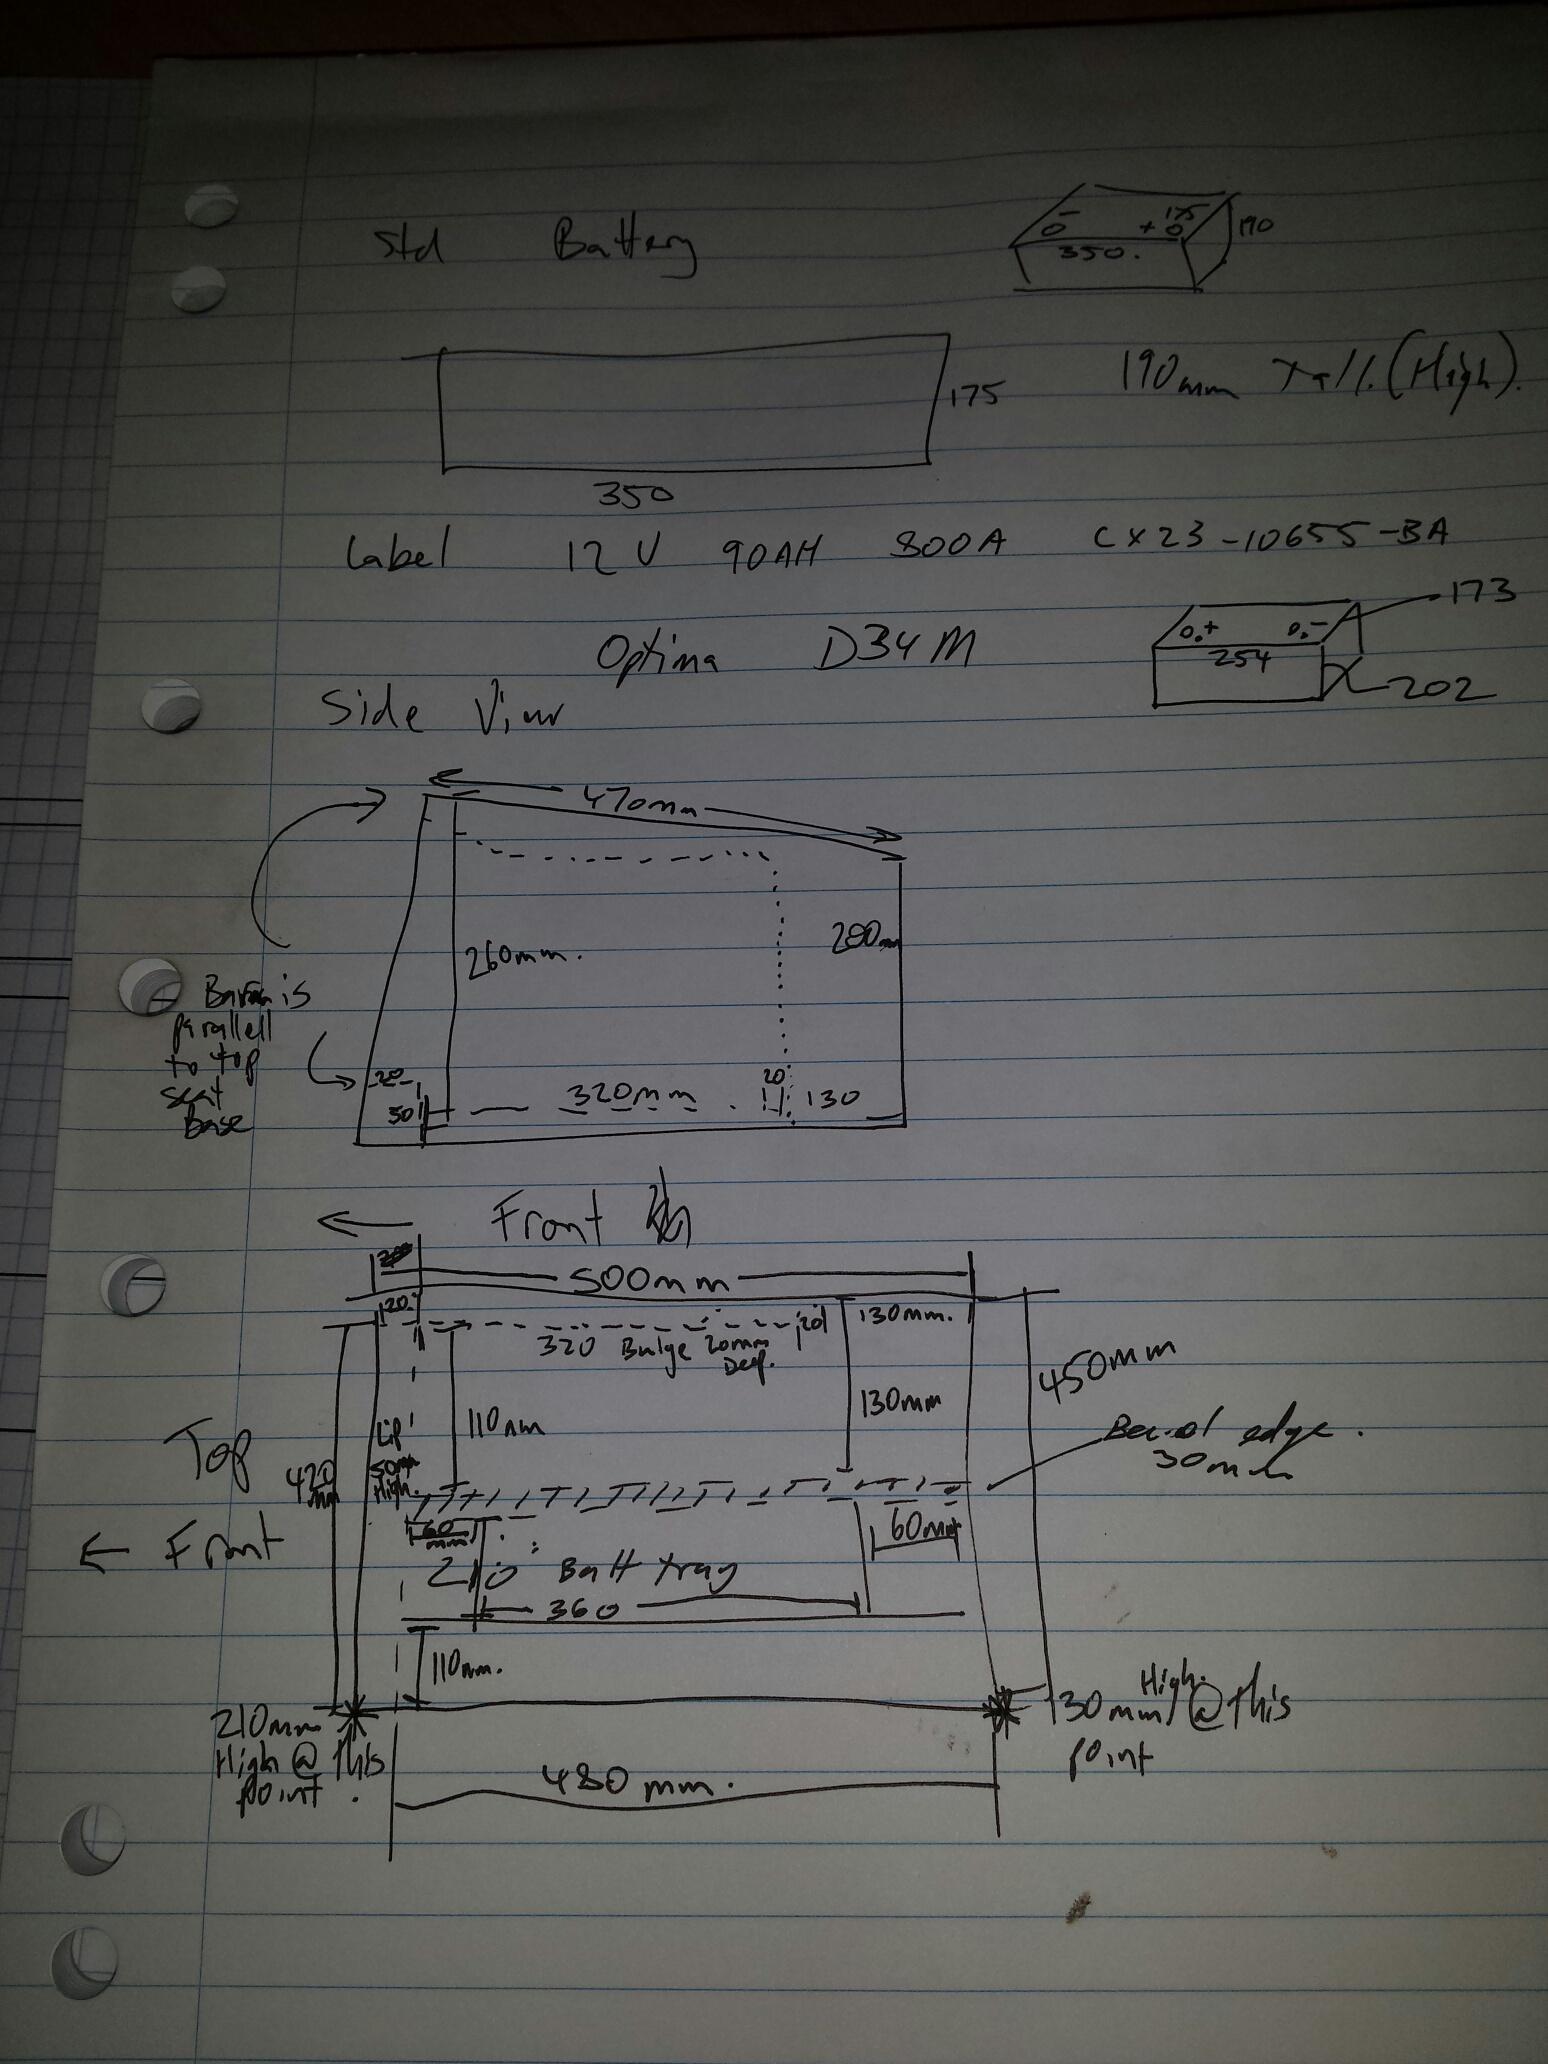 Std Battery
- 175
+ 190
350.
175
190mm Tall.(High).
350
Label 12V 90AH 800A CX23-10655-BA
173
+ -
254
Optima D34M
202
Side View
470mm
260mm.
200mm
is
parallell
to top
seat
Base
20
50
320mm
20
130
Front
500mm
20
320 Bulge 20mm
Deep.
20
130mm.
450mm
110mm
130mm
Top
Lip
50mm
High.
edge.
30mm
420
mm
← Front
60
mm
60mm
210 Batt tray
360
110mm.
210mm
High @ this
point.
High.
130mm @ this
point
480mm.